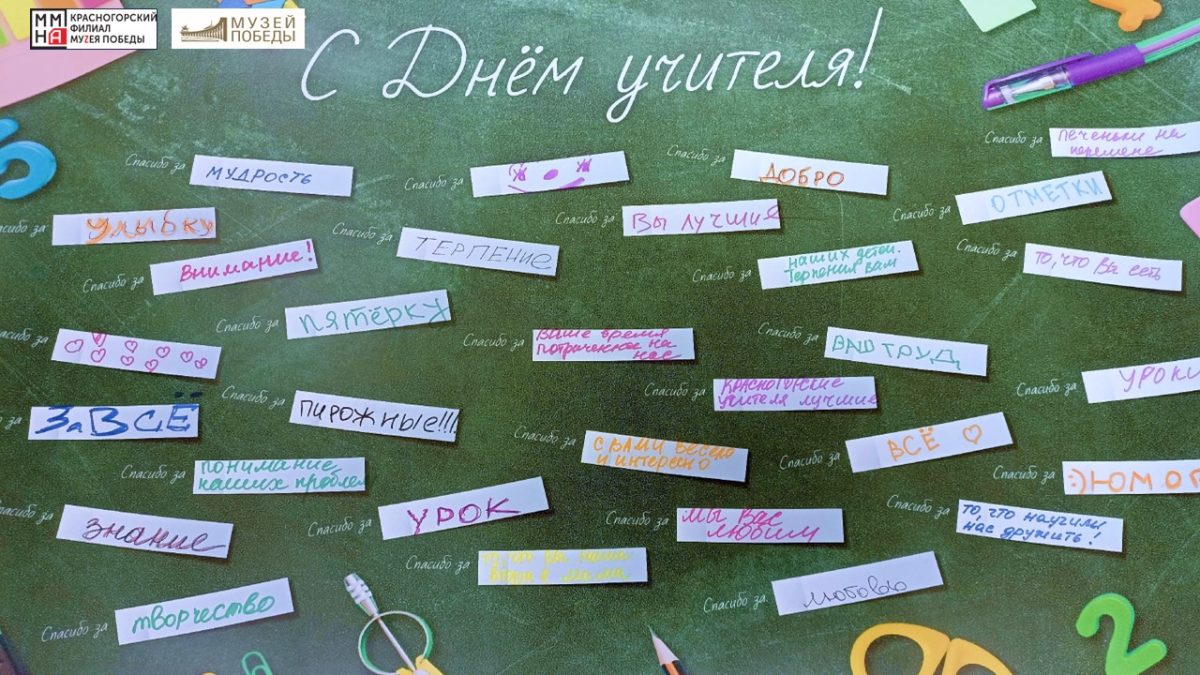 ММ
НА
КРАСНОГОРСКИЙ
ФИЛИАЛ
МУZЕЯ ПОБЕДЫ
МУЗЕЙ
ПОБЕДЫ
С Днём учителя!
Спасибо за печеньки на
перемене
Спасибо за МУДРОСТЬ
Спасибо за
Спасибо за ДОБРО
Спасибо за ОТМЕТКИ
Спасибо за улыбку
Спасибо за Вы лучшие
Спасибо за ТЕРПЕНИЕ
Спасибо за внимание!
Спасибо за наших детей.
Терпения вам
Спасибо за то, что вы есть
Спасибо за пятёрку
Спасибо за
Спасибо за ваше время
потраченное на
нас
Спасибо за ВАШ ТРУД
Спасибо за КРАСНОГОРСКИЕ
учителя лучшие
Спасибо за УРОКИ
за За ВСЁ
Спасибо за ПИРОЖНЫЕ!!!
Спасибо за с вами весело
и интересно
Спасибо за ВСЁ
Спасибо за понимание
наших проблем
Спасибо за :) ЮМОР
Спасибо за знание
Спасибо за УРОК
Спасибо за мы вас
любим
Спасибо за то, что научили
нас дружить!
Спасибо за то, что вы
Спасибо за любовью
Спасибо за творчество
5
2